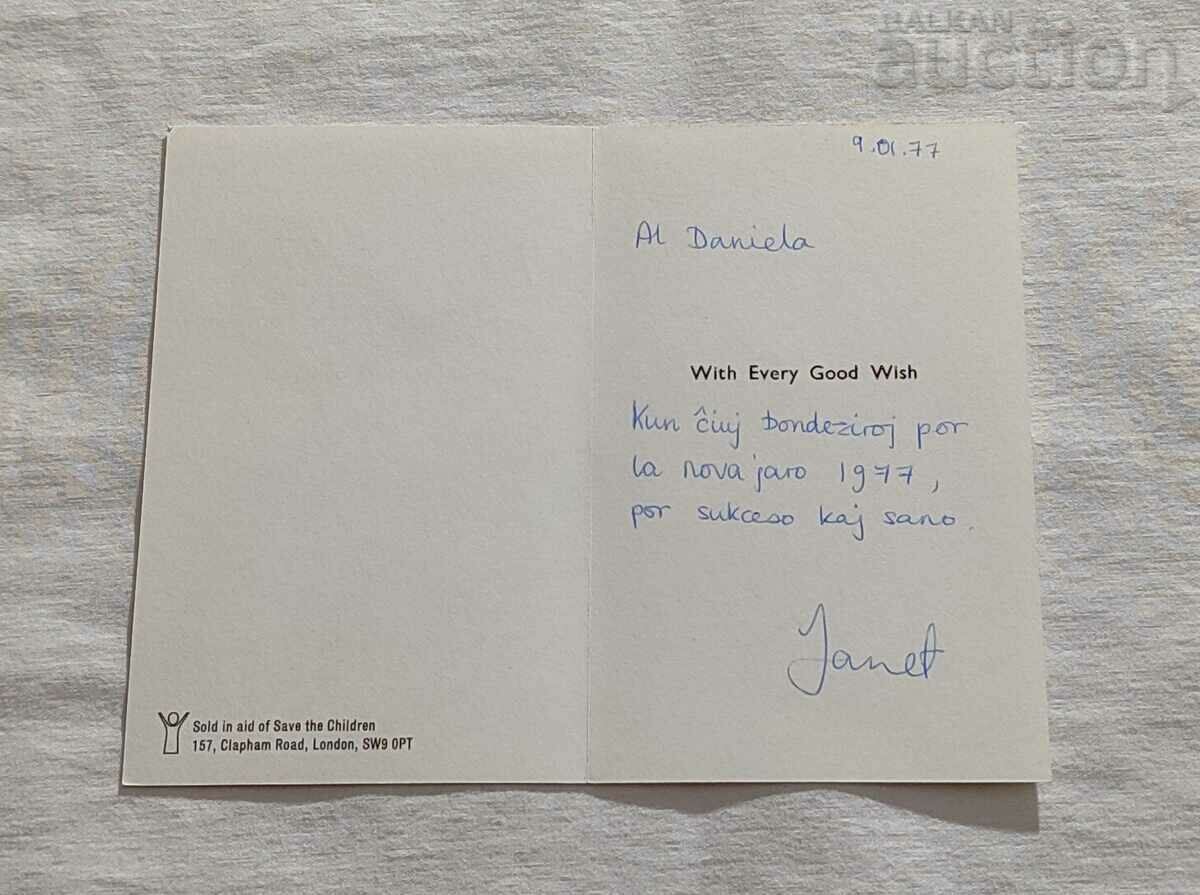 BALKAN
auction
9.01.77
Al Daniela
With Every Good Wish
Kun ĉiuj bondeziroj por
la nova jaro 1977,
por sukceso kaj sano.
Janet
Sold in aid of Save the Children
157, Clapham Road, London, SW9 0PT